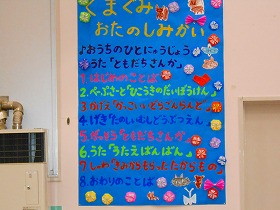 くまぐみ
おたのしみかい
♪おうちのひとにゅうじょう
♪うた“ともだちさんか”
1.はじめのことば
2.ぺーぷさーと“ひこうきのだいぼうけん”
3.かげえ“かっこいいどうこんらんど”
4.げき“たのしいむしどうぶつえん”
5.がっそう“ともだちさんか”
6.うた“うたえばんばん”
7.しゅわ“きみからもらったたからもの”
8.おわりのことば